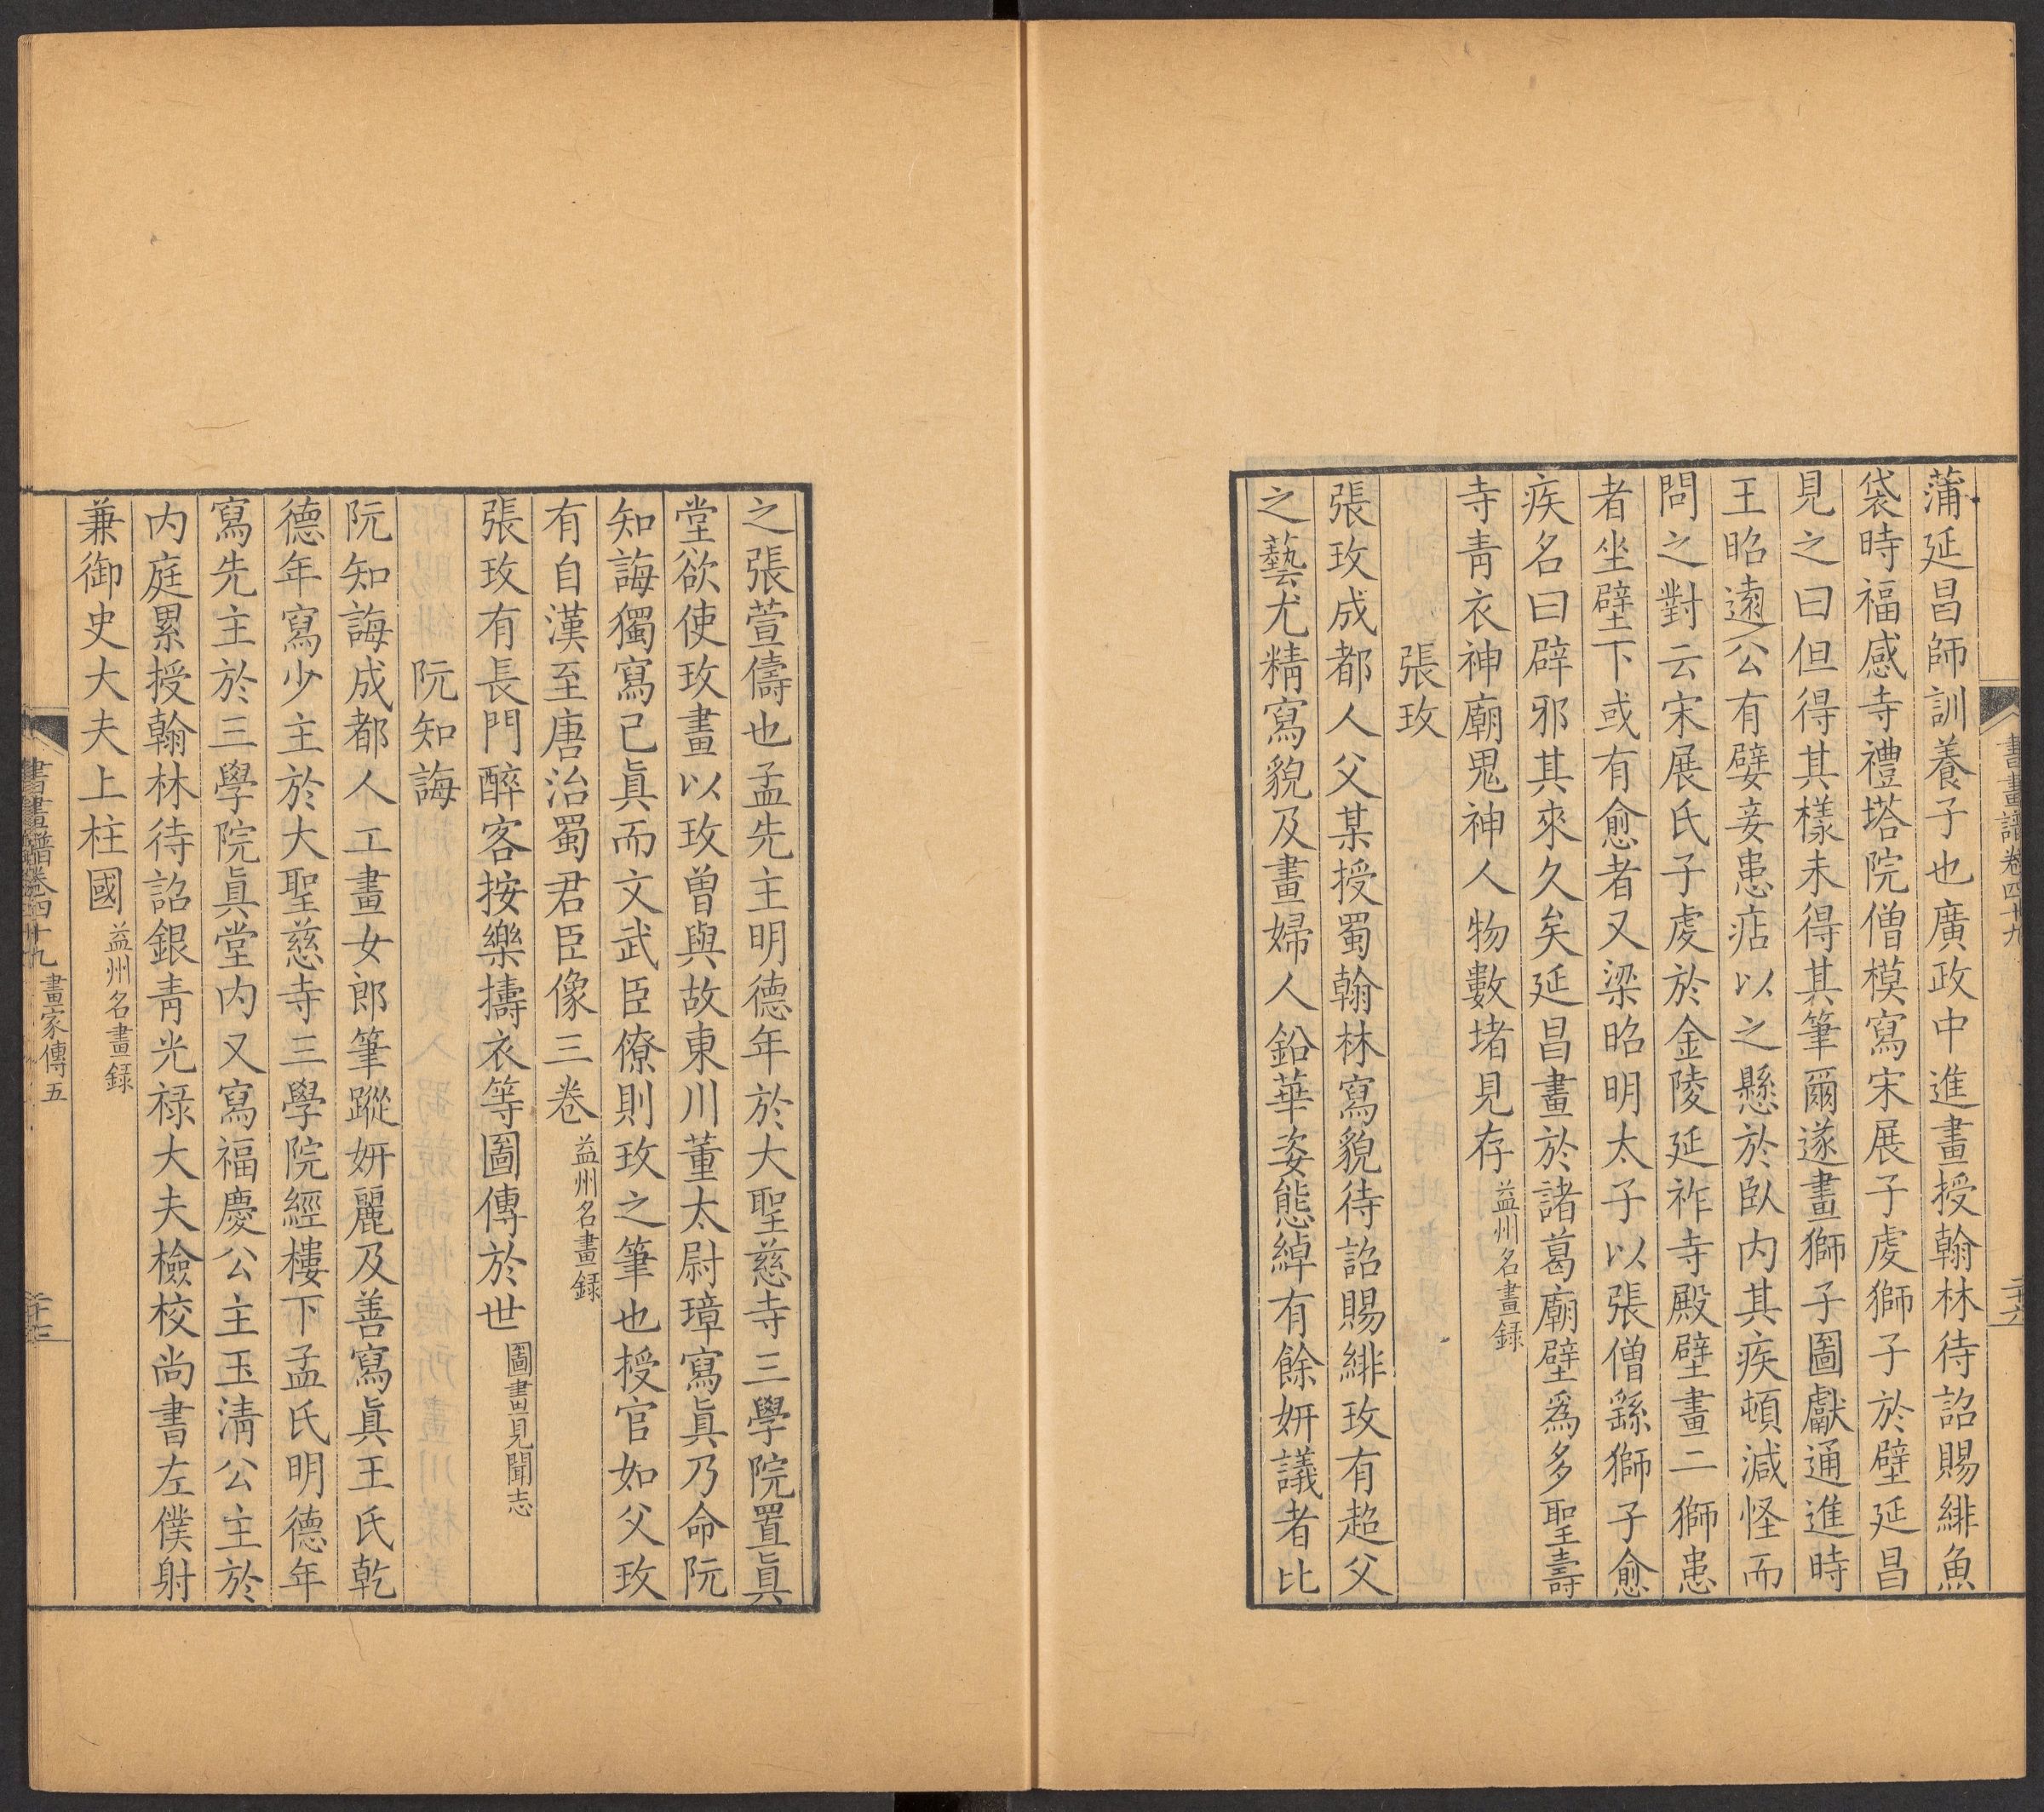 蒲延昌師訓養子也廣政中進畫授翰林待詔賜緋魚
袋時福感寺禮塔院僧模寫宋展子虔獅子於壁延昌
見之曰但得其樣未得其筆爾遂畫獅子圖獻通進時
王昭遠公有嬖妾患痁以之懸於臥内其疾頓減怪而
問之對云宋展氏子虔於金陵延祚寺殿壁畫二獅患
者坐壁下或有愈者又梁昭明太子以張僧繇獅子愈
疾名曰辟邪其來久矣延昌畫於諸葛廟壁爲多聖壽
寺青衣神廟鬼神人物數堵見存益州名畫録
張玫
張玫成都人父某授蜀翰林寫貌待詔賜緋玫有超父
之藝尤精寫貌及畫婦人鉛華姿態綽有餘妍議者比
書畫譜卷四十九
二十六
之張萱儔也孟先主明德年於大聖慈寺三學院置眞
堂欲使玫畫以玫曾與故東川董太尉璋寫眞乃命阮
知誨獨寫己眞而文武臣僚則玫之筆也授官如父玫
有自漢至唐治蜀君臣像三卷益州名畫録
張玫有長門醉客按樂擣衣等圖傳於世圖畫見聞志
阮知誨
阮知誨成都人工畫女郎筆蹤妍麗及善寫眞王氏乾
德年寫少主於大聖慈寺三學院經樓下孟氏明德年
寫先主於三學院眞堂内又寫福慶公主玉清公主於
内庭累授翰林待詔銀青光禄大夫檢校尚書左僕射
兼御史大夫上柱國益州名畫録
書畫譜卷四十九 畫家傳五